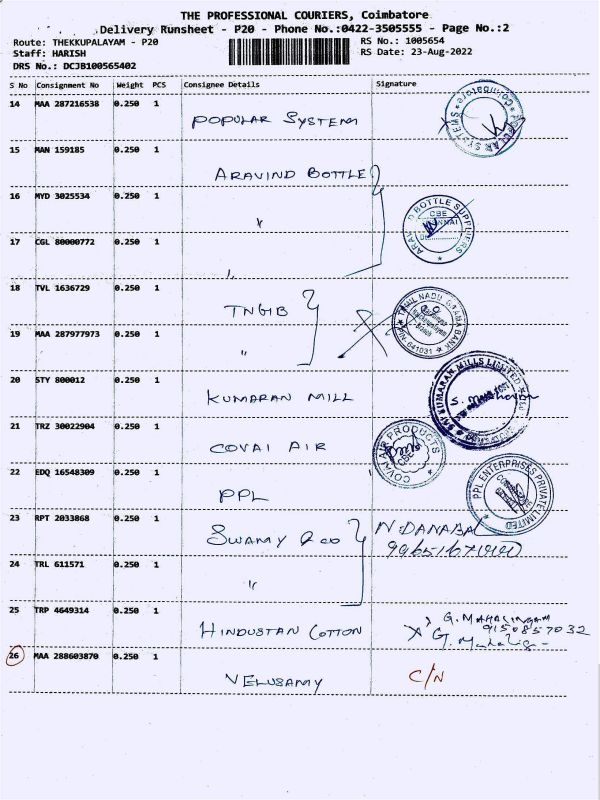 THE PROFESSIONAL COURIERS, Coimbatore
Delivery Runsheet - P20 - Phone No.:0422-3505555 - Page No.:2
Route: THEKKUPALAYAM - P20 RS No.: 1005654
Staff: HARISH RS Date: 23-Aug-2022
DRS No.: DCJB100565402
S No Consignment No Weight PCS Consignee Details Signature
14 MAA 287216538 0.250 1 POPULAR SYSTEM
POPULAR SYSTEMS * Coimbatore *
15 MAN 159185 0.250 1 ARAVIND BOTTLE
16 MYD 3025534 0.250 1 "
BOTTLE SUPPLIERS
CBE
17 CGL 80000772 0.250 1 "
18 TVL 1636729 0.250 1 TNGB
TAMIL NADU GRAMA BANK
641031
19 MAA 287977973 0.250 1 "
20 STY 800012 0.250 1 KUMARAN MILL
KUMARAN MILLS LIMITED
21 TRZ 30022904 0.250 1 COVAI AIR
COVAI AIR PRODUCTS
CBE
22 EDQ 16548309 0.250 1 PPL
PPL ENTERPRISES PRIVATE LIMITED
23 RPT 2033868 0.250 1 SWAMY & CO N. DANABA
24 TRL 611571 0.250 1 "
25 TRP 4649314 0.250 1 HINDUSTAN COTTON G. MAHALINGAM
9150857032
26 MAA 288603870 0.250 1 VELUSAMY C/N